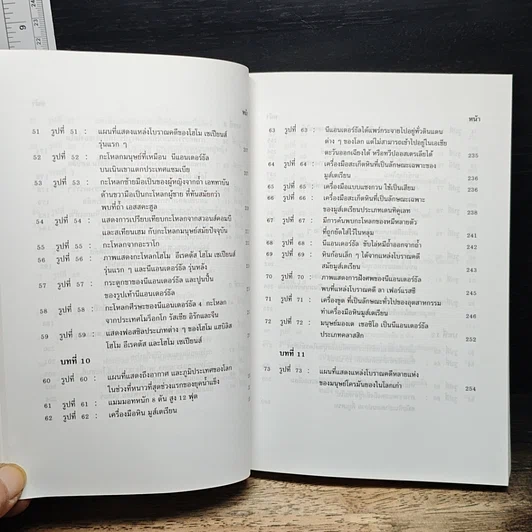 51 รูปที่ 51 : แผนที่แสดงแหล่งโบราณคดีของโฮโม เซเปียนส์
รุ่นแรก ๆ
52 รูปที่ 52 : กะโหลกมนุษย์ที่เหมือน นีแอนเดอร์ธัล
บนเนินเขาแตกประเทศแซมเบีย
53 รูปที่ 53 : กะโหลกซ้ายมือเป็นของผู้หญิงจากถ้ำ เอททาบัน
ด้านขวามือเป็นกะโหลกผู้ชาย ที่ทันสมัยกว่า
พบที่ถ้ำ เอสสคะฮูล
54 รูปที่ 54 : แสดงการเปรียบเทียบกะโหลกจากสวอนส์คอมบี
และสเทนเฮม กับกะโหลกมนุษย์สมัยปัจจุบัน
55 รูปที่ 55 : กะโหลกจากอะราโก
56 รูปที่ 56 : ภาพแสดงกะโหลกโฮโม อีเรคตัส โฮโม เซเปียนส์
รุ่นแรก ๆ และนีแอนเดอร์ธัล รุ่นหลัง
57 รูปที่ 57 : กระดูกขาของนีแอนเดอร์ธัล และปูนปั้น
ของรูปเท้านีแอนเดอร์ธัล
58 รูปที่ 58 : กะโหลกศีรษะของนีแอนเดอร์ธัล 4 กะโหลก
จากประเทศโมร็อกโก รัสเซีย อิรักและจีน
59 รูปที่ 59 : แสดงฟอสซิลประเภทต่าง ๆ ของโฮโม แฮบิลิส
โฮโม อีเรคตัส และโฮโม เซเปียนส์
บทที่ 10
60 รูปที่ 60 : แผนที่แสดงถึงอากาศ และภูมิประเทศของโลก
ในช่วงที่หนาวที่สุดช่วงแรกของยุคน้ำแข็ง
61 รูปที่ 61 : แมมมอทหนัก 8 ตัน สูง 12 ฟุต
62 รูปที่ 62 : เครื่องมือหิน มูส์เตเรียน
หน้า
63 รูปที่ 63 : นีแอนเดอร์ธัลได้แพร่กระจายไปอยู่ทั่วดินแดน
ต่าง ๆ ของโลก แต่ไม่สามารถเข้าไปอยู่ในเอเชีย
ตะวันออกเฉียงใต้ หรือทวีปออสเตรเลียได้ 236
64 รูปที่ 64 : เครื่องมือสะเก็ดหินที่เป็นลักษณะเฉพาะของ
มูส์เตเรียน 237
65 รูปที่ 65 : เครื่องมือแบบแซงกวน ใช้เป็นเสียม 237
66 รูปที่ 66 : เครื่องมือสะเก็ดหินที่เป็นลักษณะเฉพาะ
ของมูส์เตเรียนประเภทเดนทิคูเลท 238
67 รูปที่ 67 : มีการค้นพบกะโหลกของหมีหลายหัว
ที่ถูกขัดใส่ไว้ในหลุม 239
68 รูปที่ 68 : นีแอนเดอร์ธัล ขับไล่หมีถ้ำออกจากถ้ำ 240
69 รูปที่ 69 : หินก้อนเล็ก ๆ ได้จากแหล่งโบราณคดี
สมัยมูส์เตเรียน 241
70 รูปที่ 70 : ภาพแสดงการฝังศพของนีแอนเดอร์ธัล
พบที่แหล่งโบราณคดี ลา เฟอร์แรสซี 242
71 รูปที่ 71 : เครื่องขูด ที่เป็นลักษณะทั่วไปของอุตสาหกรรม
ทำเครื่องมือหินมูส์เตเรียน
72 รูปที่ 72 : มนุษย์มองเต เซอซิโอ เป็นนีแอนเดอร์ธัล
ประเภทคลาสสิก 245
บทที่ 11
73 รูปที่ 73 : แผนที่แสดงแหล่งโบราณคดีหลายแห่ง
ของมนุษย์โครมันยองในโลกเก่า 254